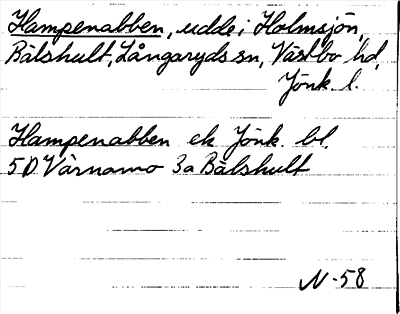 Hampenabben, udde i Holmsjön,
Bälshult, Långaryds sn, Västbo hd,
Jönk. l.
Hampenabben ek Jönk. bl.
5D Värnamo 3a Bälshult
N-58